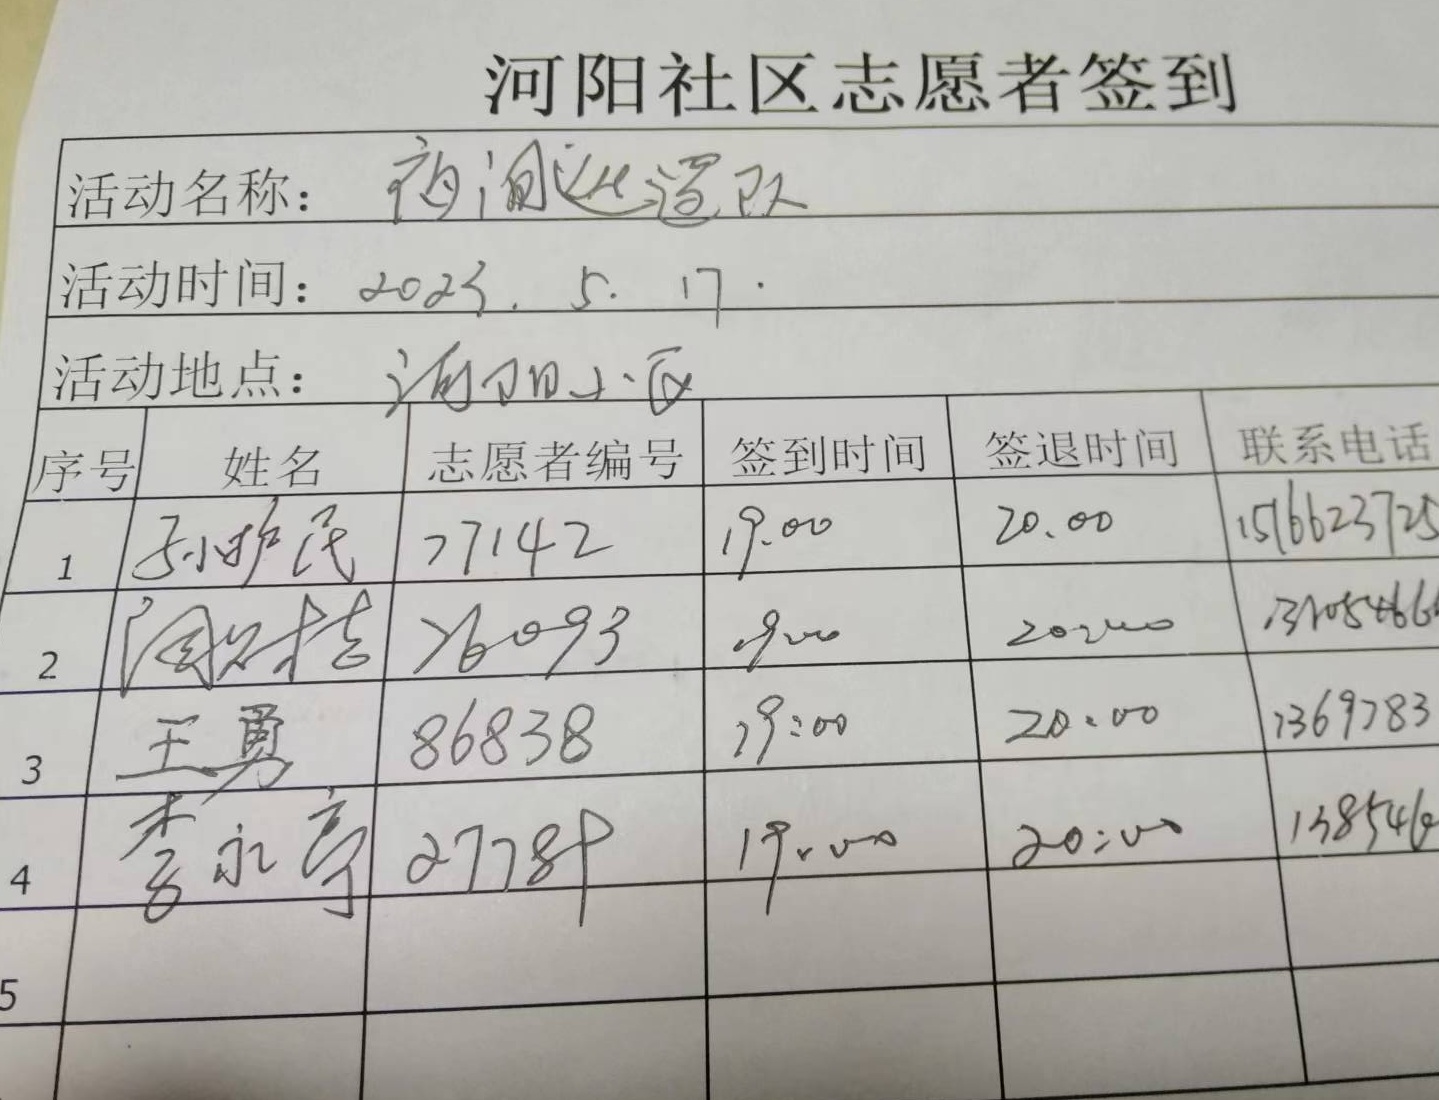 河阳社区志愿者签到
活动名称： 夜间巡逻队
活动时间： 2023. 5. 17.
活动地点： 河阳小区
序号 姓名 志愿者编号 签到时间 签退时间 联系电话
1 孙护民 77142 19.00 20.00 1516623725
2 76093 19:00 20:00 131054666
3 王勇 86838 19:00 20:00 1369783
4 李永亭 27789 19:00 20:00 138546
5